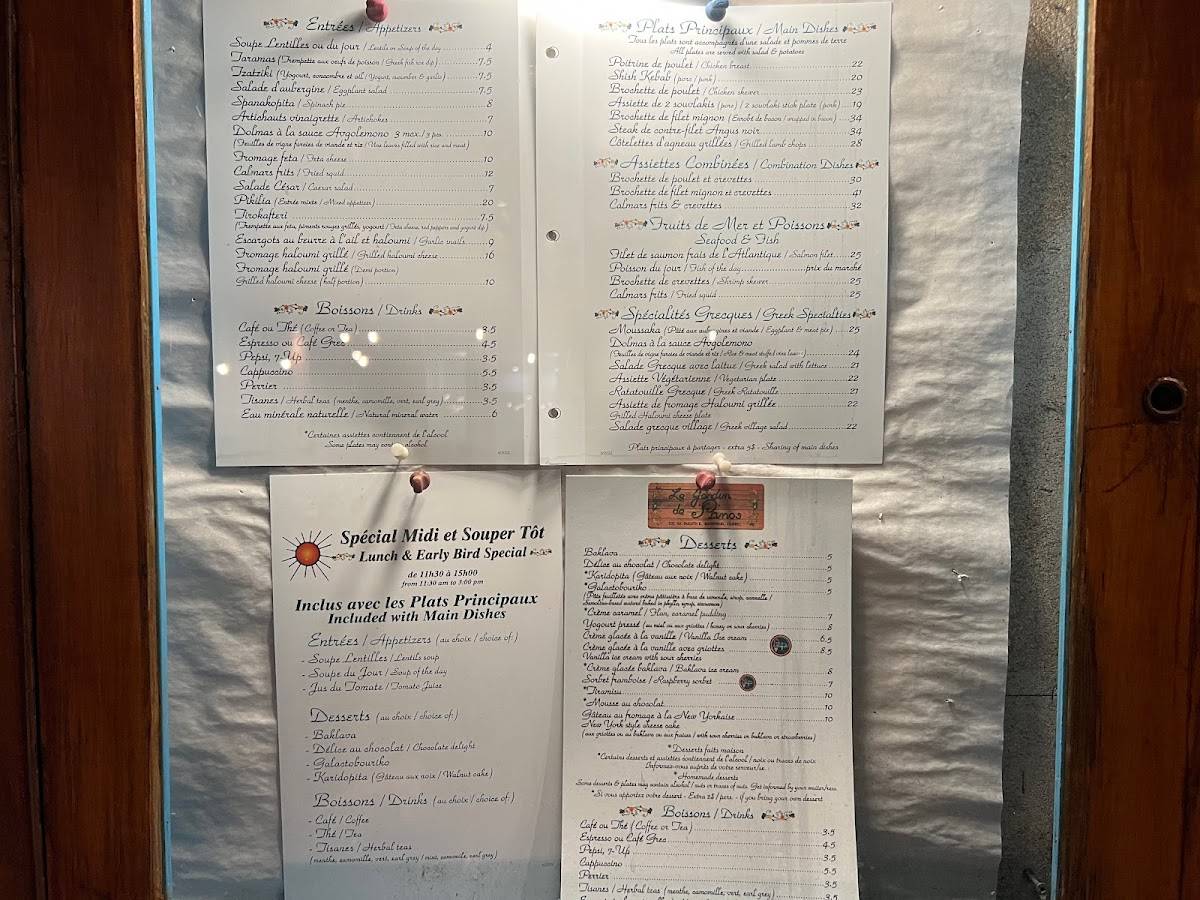 Entrées / Appetizers
Soupe Lentilles ou du jour / Lentils or Soup of the day 4
Taramas (Trempette aux oeufs de poisson / Greek fish roe dip) 7.5
Tzatziki (Yogourt, concombre et ail / Yogurt, cucumber & garlic) 7.5
Salade d'aubergine / Eggplant salad 7.5
Spanakopita / Spinach pie 8
Artichauts vinaigrette / Artichokes 7
Dolmas à la sauce Avgolemono 3 mcx./3 pcs. 10
(Feuilles de vigne farcies de viande et riz / Vine leaves filled with rice and meat)
Fromage feta / Feta cheese 10
Calmars frits / Fried squid 12
Salade César / Caesar salad 7
Pikilia (Entrée mixte / Mixed appetizer) 20
Tirokafteri 7.5
(Trempette aux feta, piments rouges grillés, yogourt / Feta cheese, red peppers and yogurt dip)
Escargots au beurre à l'ail et haloumi / Garlic snails 9
Fromage haloumi grillé / Grilled haloumi cheese 16
Fromage haloumi grillé (Demi portion)
Grilled haloumi cheese (half portion) 10
Boissons / Drinks
Café ou Thé (Coffee or Tea) 3.5
Espresso ou Café Grec 4.5
Pepsi, 7-Up 3.5
Cappuccino 5.5
Perrier 3.5
Tisanes / Herbal teas (menthe, camomille, vert, earl grey) 3.5
Eau minérale naturelle / Natural mineral water 6
*Certaines assiettes contiennent de l'alcool
Some plates may contain alcohol
Plats Principaux / Main Dishes
Tous les plats sont accompagnés d'une salade et pommes de terre
All plates are served with salad & potatoes
Poitrine de poulet / Chicken breast 22
Shish Kebab (porc / pork) 20
Brochette de poulet / Chicken skewer 23
Assiette de 2 souvlakis (porc) / 2 souvlaki stick plate (pork) 19
Brochette de filet mignon (Enrobé de bacon / wrapped in bacon) 34
Steak de contre-filet Angus noir 34
Côtelettes d'agneau grillées / Grilled lamb chops 28
Assiettes Combinées / Combination Dishes
Brochette de poulet et crevettes 30
Brochette de filet mignon et crevettes 41
Calmars frits & crevettes 32
Fruits de Mer et Poissons
Seafood & Fish
Filet de saumon frais de l'Atlantique / Salmon filet 25
Poisson du jour / Fish of the day prix du marché
Brochette de crevettes / Shrimp skewer 25
Calmars frits / Fried squid 25
Spécialités Grecques / Greek Specialties
Moussaka (Pâté aux aubergines et viande / Eggplant & meat pie) 25
Dolmas à la sauce Avgolemono
(Feuilles de vigne farcies de viande et riz / Rice & meat stuffed vine leaves) 24
Salade Grecque avec laitue / Greek salad with lettuce 21
Assiette Végétarienne / Vegetarian plate 22
Ratatouille Grecque / Greek Ratatouille 21
Assiette de fromage Haloumi grillée 22
Grilled Haloumi cheese plate
Salade grecque village / Greek village salad 22
Plats principaux à partager - extra 5$ - Sharing of main dishes
Spécial Midi et Souper Tôt
Lunch & Early Bird Special
de 11h30 à 15h00
from 11:30 am to 3:00 pm
Inclus avec les Plats Principaux
Included with Main Dishes
Entrées / Appetizers (au choix / choice of:)
- Soupe Lentilles / Lentils soup
- Soupe du Jour / Soup of the day
- Jus du Tomate / Tomato Juise
Desserts (au choix / choice of:)
- Baklava
- Délice au chocolat / Chocolate delight
- Galactobouriko
- Karidopita (Gâteau aux noix / Walnut cake)
Boissons / Drinks (au choix / choice of:)
- Café / Coffee
- Thé / Tea
- Tisanes / Herbal teas
(menthe, camomille, vert, earl grey / mint, camomile, earl grey)
Le Jardin
de Panos
Desserts
Baklava 5
Délice au chocolat / Chocolate delight 5
*Karidopita (Gâteau aux noix / Walnut cake) 5
*Galactobouriko 5
(Pâte feuilletée avec crème pâtissière à base de semoule, sirop, cannelle /
Semolina-based custard baked in phyllo, syrup, cinnamon)
*Crème caramel / Flan, caramel pudding 7
Yogourt pressé (au miel ou aux griottes / honey or sour cherries) 8
Crème glacée à la vanille / Vanilla Ice cream 6.5
Crème glacée à la vanille avec griottes 8.5
Vanilla ice cream with sour cherries
*Crème glacée baklava / Baklava ice cream 8
Sorbet framboise / Raspberry sorbet 7
*Tiramisu 10
*Mousse au chocolat 10
Gâteau au fromage à la New Yorkaise 10
New York style cheese cake
(aux griottes ou au baklava ou aux fraises / with sour cherries or baklava or strawberries)
*Desserts faits maison
*Certains desserts et assiettes contiennent de l'alcool / noix ou traces de noix
Informez-vous auprès de votre serveur/se.
* Homemade desserts
Some desserts & plates may contain alcohol / nuts or traces of nuts. Get informed by your waiter/ress
*Si vous apportez votre dessert - Extra 2$ / pers. - if you bring your own dessert
Boissons / Drinks
Café ou Thé (Coffee or Tea) 3.5
Espresso ou Café Grec 4.5
Pepsi, 7-Up 3.5
Cappuccino 5.5
Perrier 3.5
Tisanes / Herbal teas (menthe, camomille, vert, earl grey) 3.5